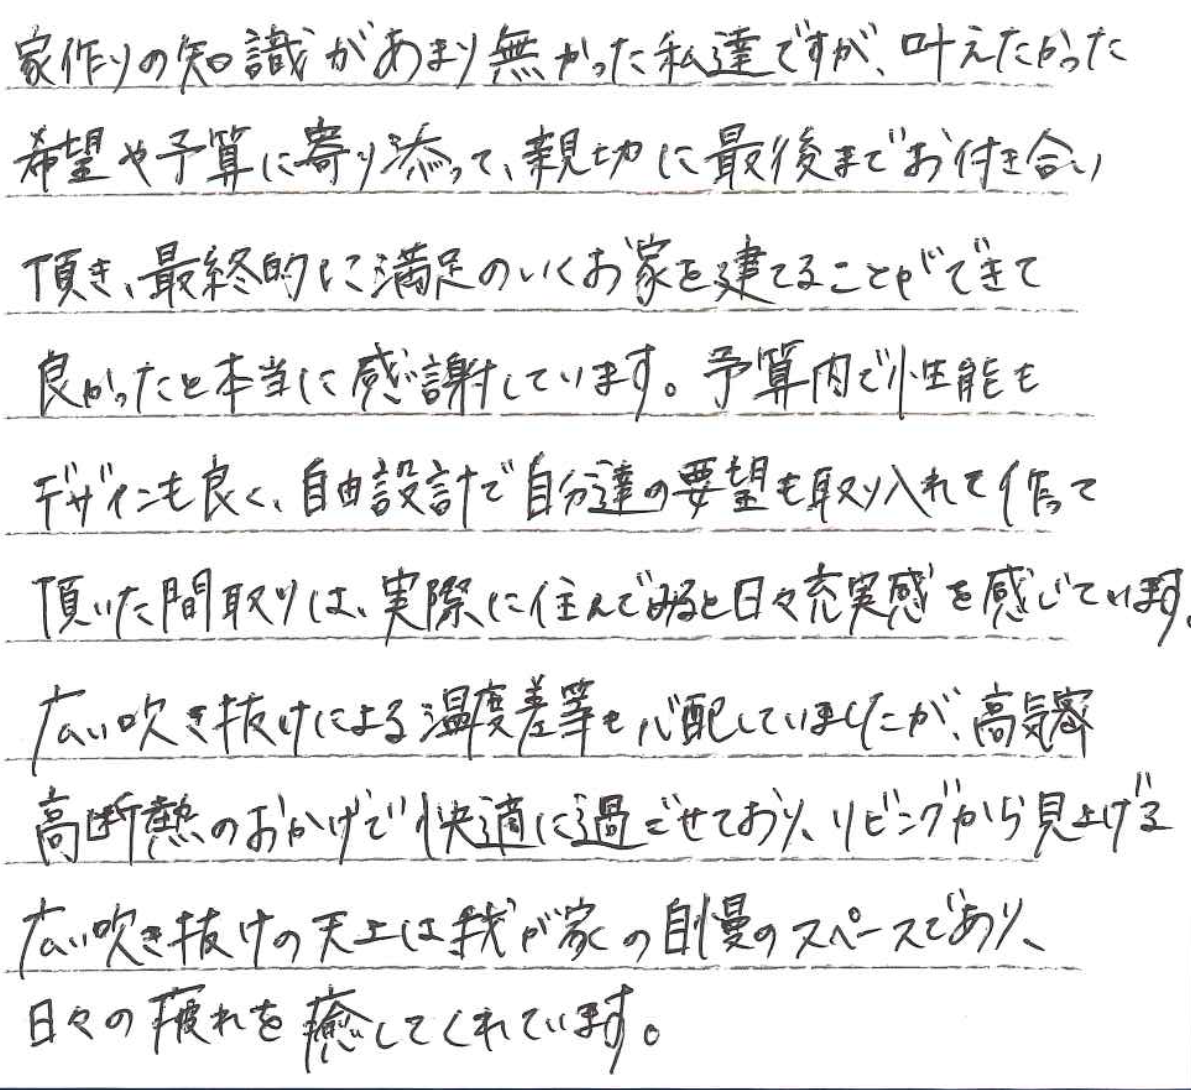 家作りの知識があまり無かった私達ですが、叶えたかった
希望や予算に寄り添って、親切に最後までお付き合い
頂き、最終的に満足のいくお家を建てることができて
良かったと本当に感謝しています。予算内で性能も
デザインも良く、自由設計で自分達の要望も取り入れて作って
頂いた間取りは、実際に住んでみると日々充実感を感じています。
広い吹き抜けによる温度差等も心配していましたが、高気密
高断熱のおかげで快適に過ごせており、リビングから見上げる
広い吹き抜けの天上は我が家の自慢のスペースであり、
日々の疲れを癒してくれています。